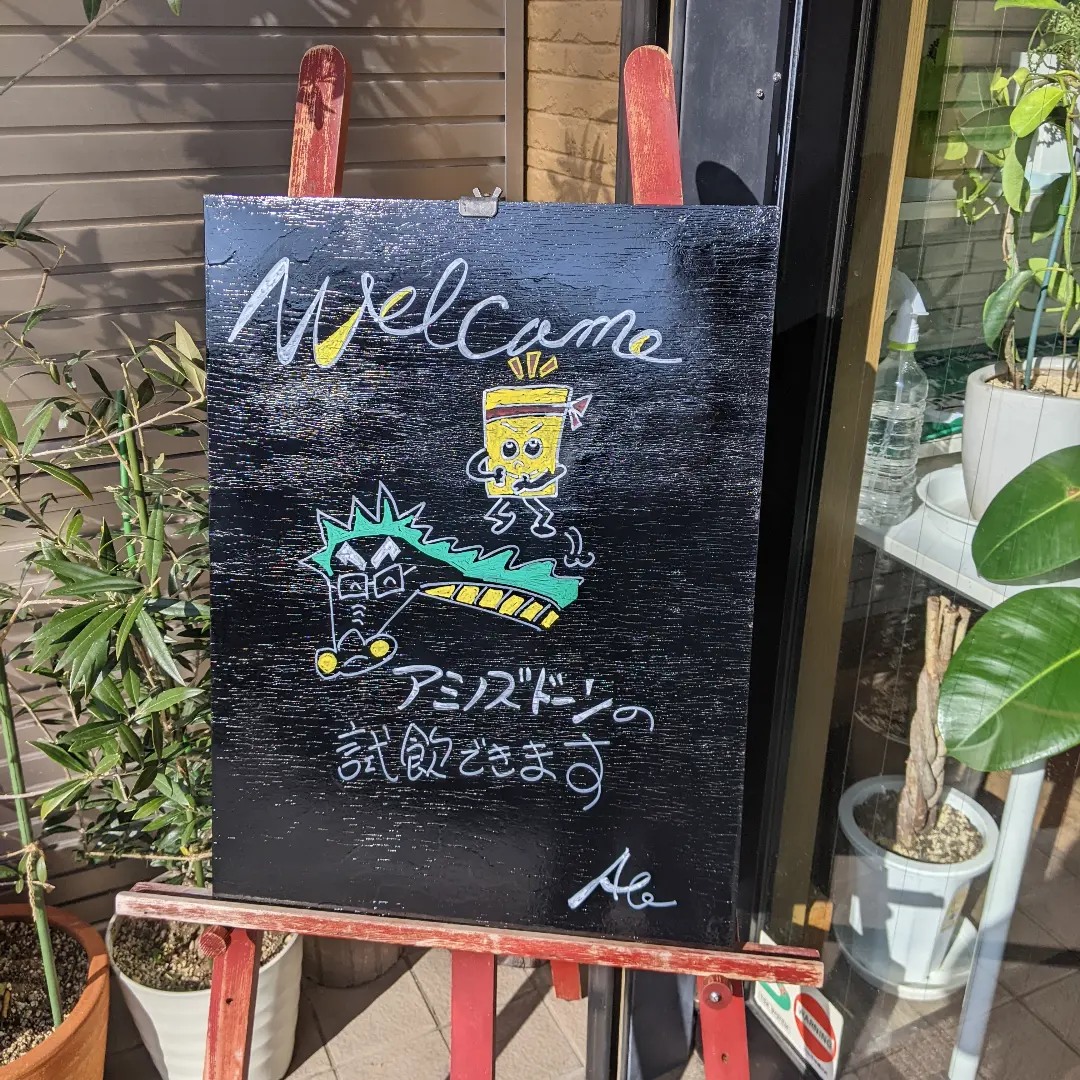 Welcome
アミノズドーンの
試飲できます
Ale
WARNING